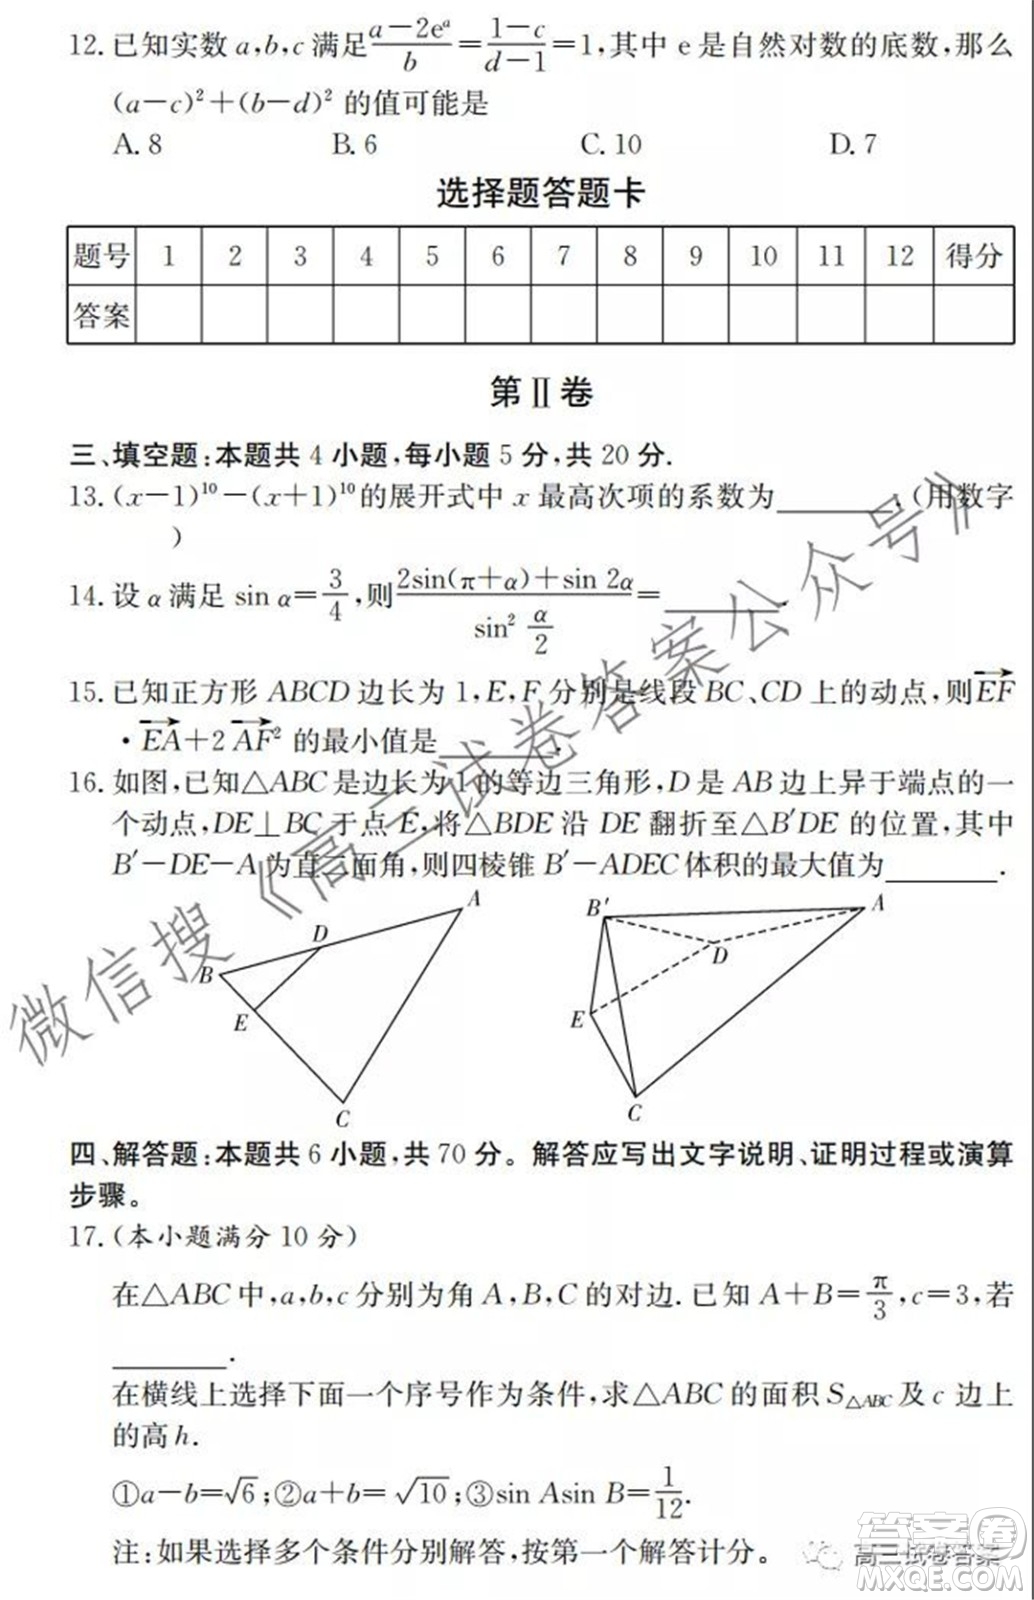 12. 已知实数 a,b,c 满足 (a-2eᵃ)/b = (1-c)/(d-1) = 1,其中 e 是自然对数的底数,那么
(a-c)²+(b-d)² 的值可能是
A. 8 B. 6 C. 10 D. 7
选择题答题卡
题号 1 2 3 4 5 6 7 8 9 10 11 12 得分
答案
第Ⅱ卷
三、填空题:本题共 4 小题,每小题 5 分,共 20 分.
13. (x-1)¹⁰-(x+1)¹⁰ 的展开式中 x 最高次项的系数为________.(用数字
)
14. 设 α 满足 sin α=3/4,则 (2sin(π+α)+sin 2α)/(sin² α/2) = ________.
15. 已知正方形 ABCD 边长为 1,E,F 分别是线段 BC、CD 上的动点,则 \overrightarrow{EF}
· \overrightarrow{EA}+2 \overrightarrow{AF}² 的最小值是________.
16. 如图,已知△ABC 是边长为 1 的等边三角形,D 是 AB 边上异于端点的一
个动点,DE⊥BC 于点 E,将△BDE 沿 DE 翻折至△B′DE 的位置,其中
B′-DE-A 为直二面角,则四棱锥 B′-ADEC 体积的最大值为________.
A
D
B
E
C
B′
A
D
E
C
四、解答题:本题共 6 小题,共 70 分。解答应写出文字说明、证明过程或演算
步骤。
17. (本小题满分 10 分)
在△ABC 中,a,b,c 分别为角 A,B,C 的对边.已知 A+B=π/3,c=3,若
________.
在横线上选择下面一个序号作为条件,求△ABC 的面积 S△ABC 及 c 边上
的高 h.
①a-b=√6;②a+b=√10;③sin Asin B=1/12.
注:如果选择多个条件分别解答,按第一个解答计分。
微信搜《高三试卷答案公众号》
高三试卷答案
答案卷
MXQE.COM